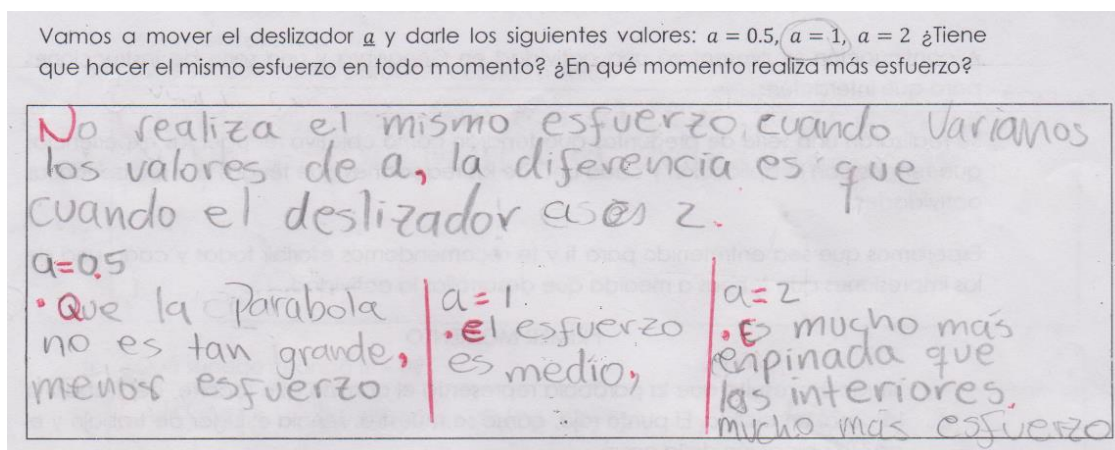 Vamos a mover el deslizador a y darle los siguientes valores: a = 0.5, a = 1, a = 2 ¿Tiene
que hacer el mismo esfuerzo en todo momento? ¿En qué momento realiza más esfuerzo?
No realiza el mismo esfuerzo, cuando Variamos
los valores de a, la diferencia es que
cuando el deslizador a es 2.
a=0,5
• Que la Parabola
no es tan grande,
menos esfuerzo
a=1.
• El esfuerzo
es medio,
a=2
• Es mucho más
enpinada que
las interiores.
mucho mas esfuerzo